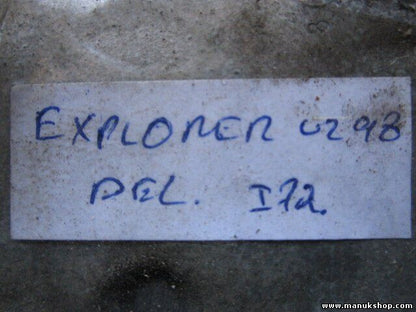 EXPLORER 0298
DEL. IZQ.
www.manukshop.com